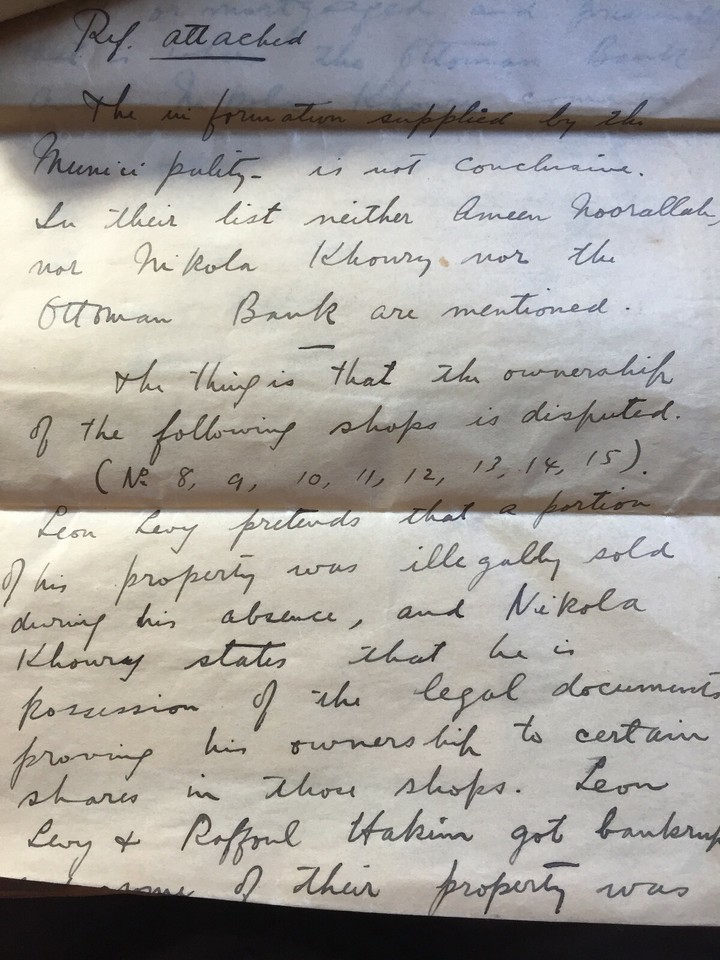 Ref. attached
The information supplied by the
Municipality is not conclusive.
In their list neither Ameen Noorallah,
nor Nikola Khoury nor the
Ottoman Bank are mentioned.
The thing is that the ownership
of the following shops is disputed.
(No 8, 9, 10, 11, 12, 13, 14, 15).
Leon Levy pretends that a portion
of his property was illegally sold
during his absence, and Nikola
Khoury states that he is
possession of the legal documents
proving his ownership to certain
shares in those shops. Leon
Levy & Raffoul Hakim got bankrup
some of their property was